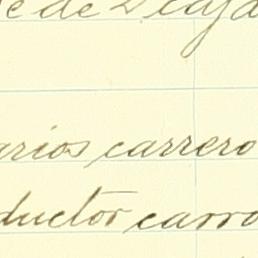 de
arios carrero
ductor carro